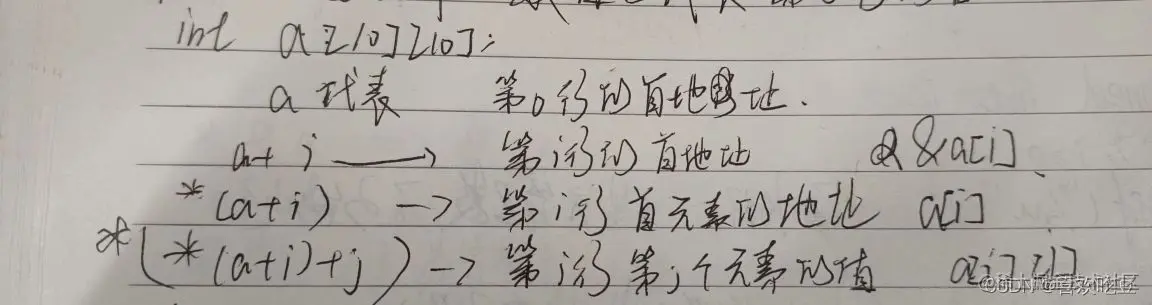 int a[10][10];
a 代表 第0行的首地址.
a+i → 第i行的首地址 &a[i]
*(a+i) → 第i行首元素的地址 a[i]
*(*(a+i)+j) → 第i行第j个元素的值 a[i][j]